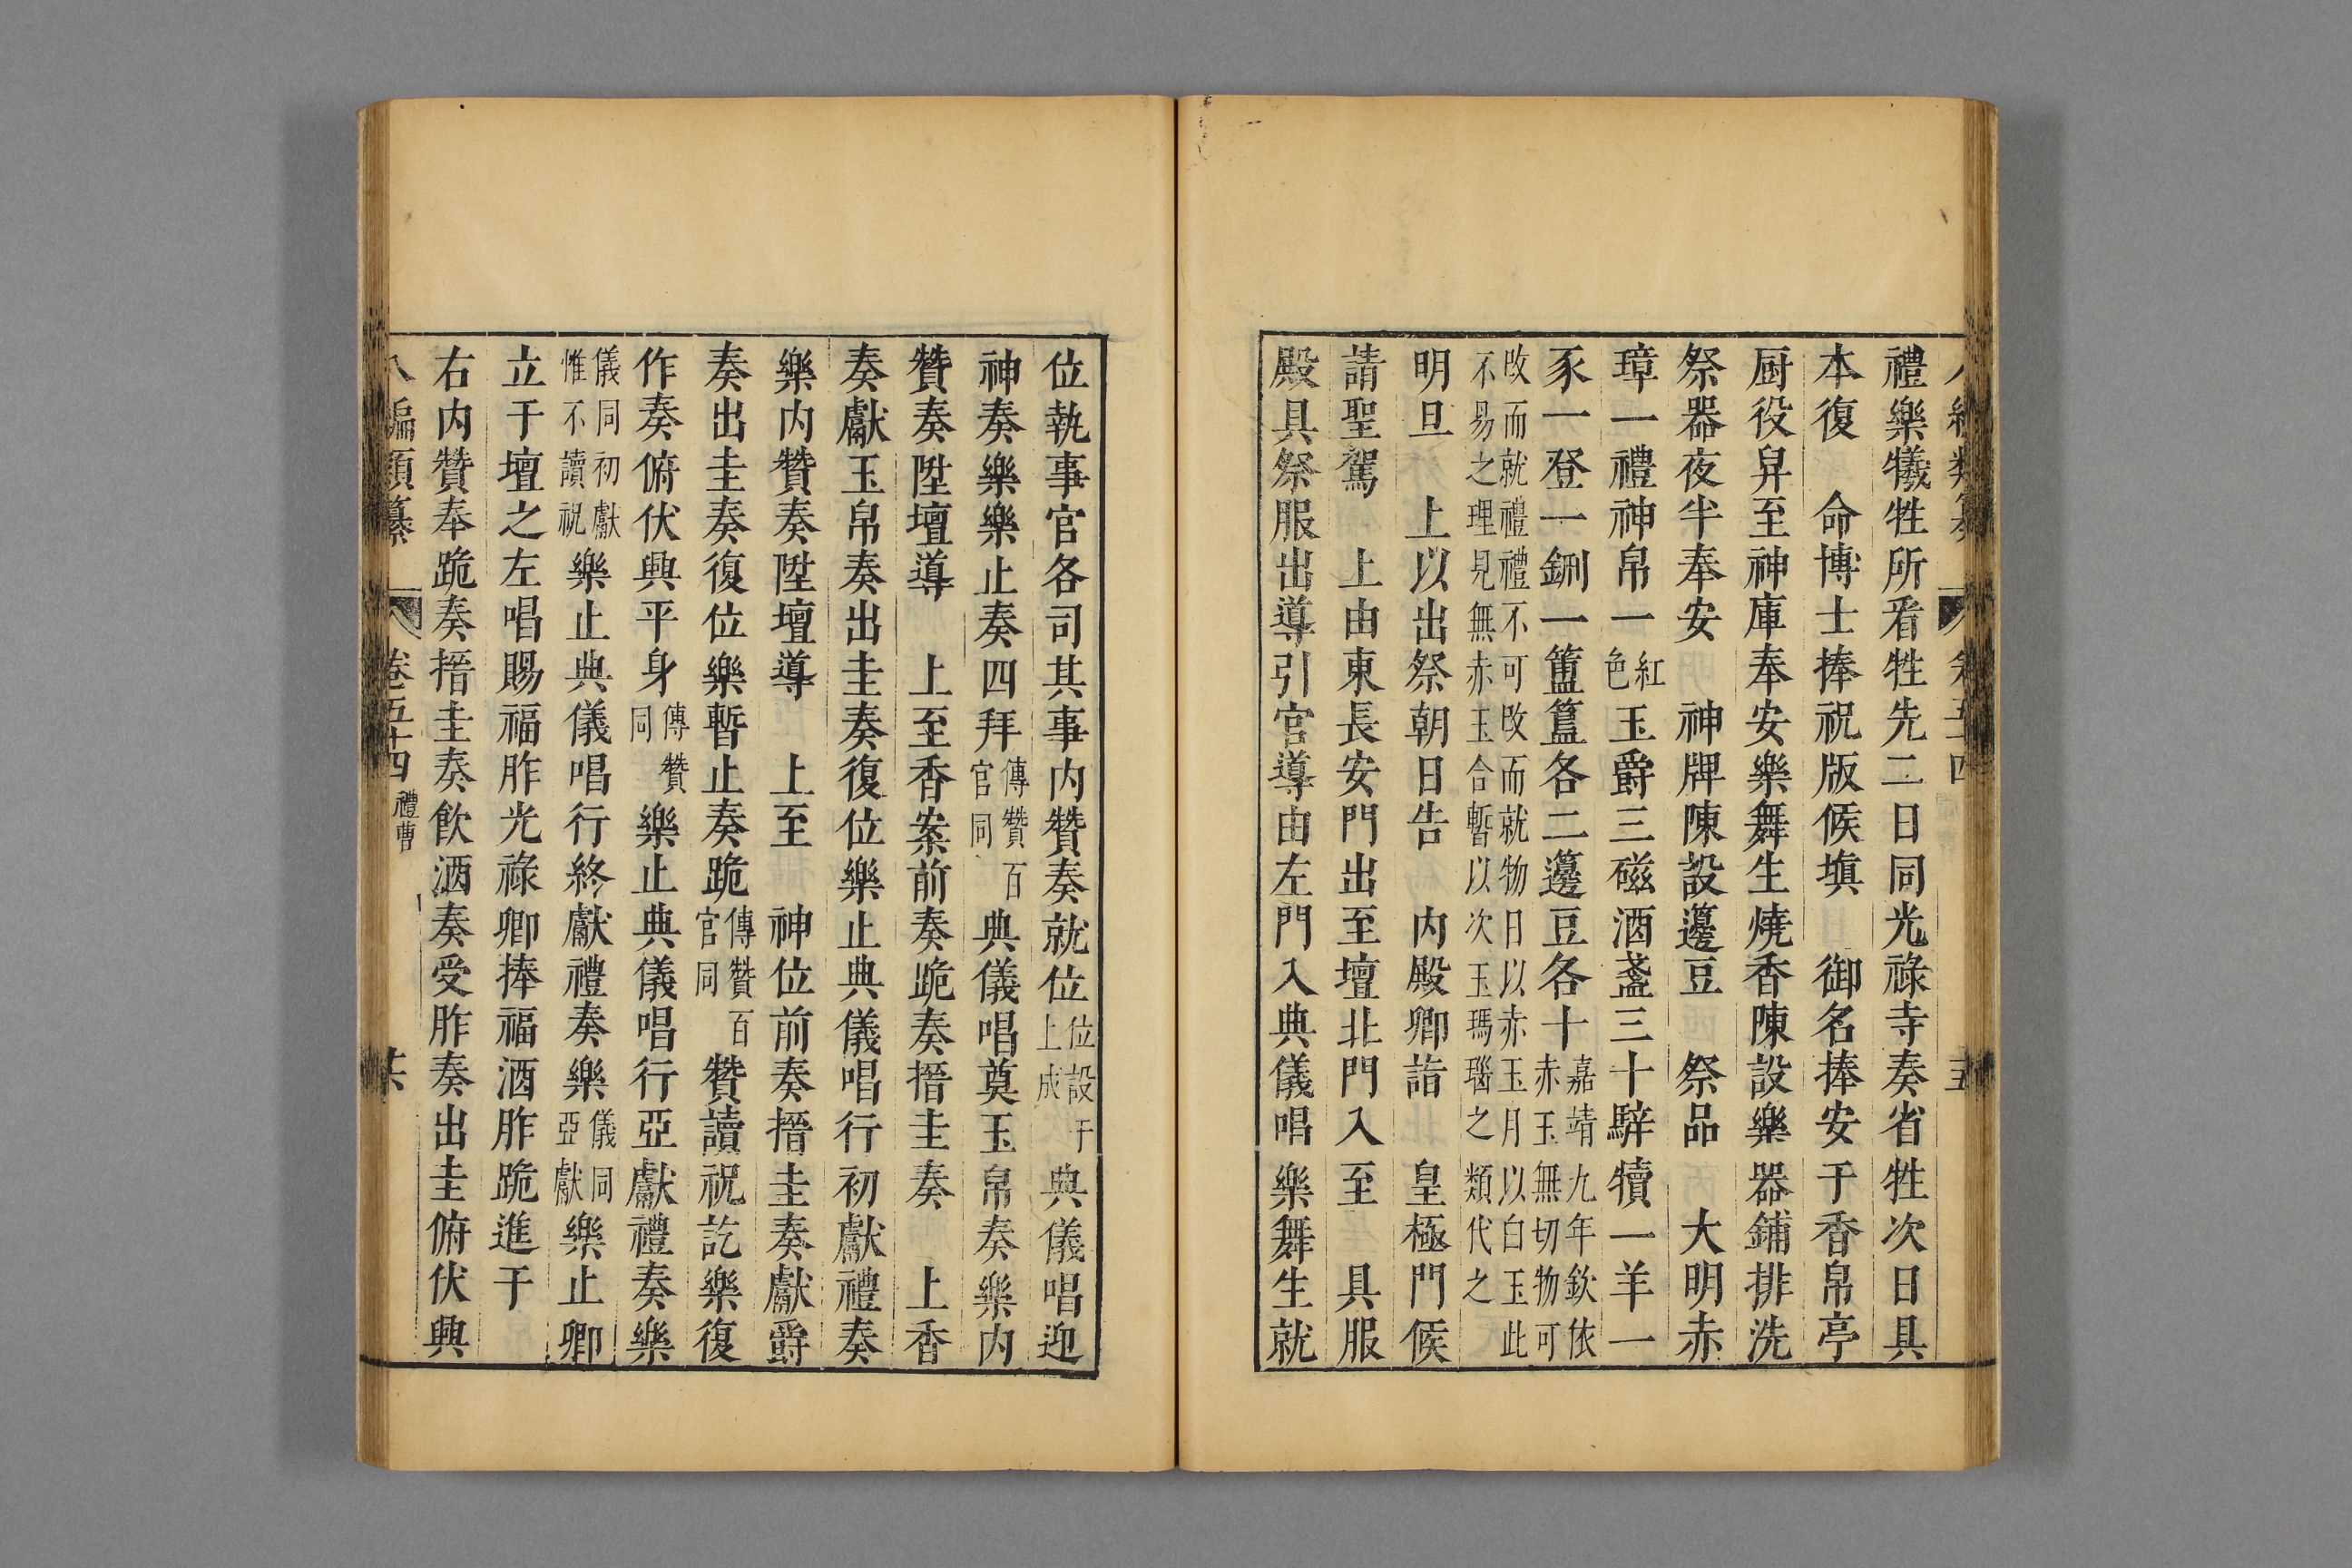 禮樂犧牲所看牲先二日同光祿寺奏省牲次日具
本復　命博士捧祝版候塡　御名捧安于香帛亭
厨役舁至神庫奉安樂舞生燒香陳設樂器鋪排洗
祭器夜半奉安　神牌陳設籩豆　祭品　大明赤
璋一禮神帛一紅色玉爵三磁酒盞三十騂犢一羊一
豕一登一鉶一簠簋各二籩豆各十嘉靖九年欽依赤玉無切物可
改而就禮禮不可改而就物日以赤玉月以白玉此不易之理見無赤玉合暫以次玉瑪瑙之類代之
明旦　上以出祭朝日告　内殿卿詣　皇極門候
請聖駕　上由東長安門出至壇北門入至　具服
殿具祭服出導引官導由左門入典儀唱樂舞生就
位執事官各司其事内贊奏就位位設于上成典儀唱迎
神奏樂樂止奏四拜傳贊百官同典儀唱奠玉帛奏樂内
贊奏陞壇導　上至香案前奏跪奏搢圭奏　上香
奏獻玉帛奏出圭奏復位樂止典儀唱行初獻禮奏
樂内贊奏陞壇導　上至　神位前奏搢圭奏獻爵
奏出圭奏復位樂暫止奏跪傳贊百官同贊讀祝訖樂復
作奏俯伏興平身傳贊同樂止典儀唱行亞獻禮奏樂
儀同初獻惟不讀祝樂止典儀唱行終獻禮奏樂儀同亞獻樂止卿
立于壇之左唱賜福胙光祿卿捧福酒胙跪進于
右内贊奉跪奏搢圭奏飲酒奏受胙奏出圭俯伏興
八編類纂　卷五十四　禮曹